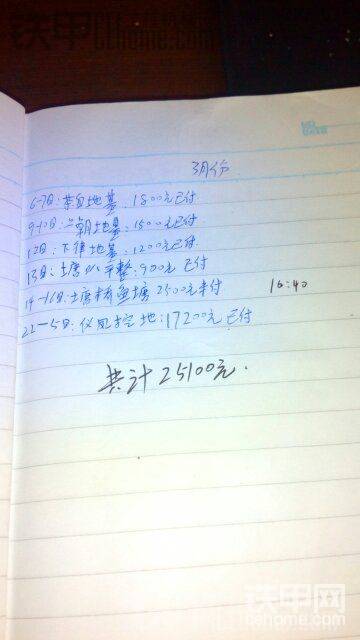 铁甲网
cehome.com
3月份
6-7日:菜自地基 1800元已付
9-10日:兰朝地基:1500元已付
12日:下律地基:1200元已付
13日:土唐 平整:900元 已付
14-16日:土唐 鱼塘 2500元未付 16:40
22-5日:仪凤 地:17200元已付
共计25100元.
铁甲网
cehome.com